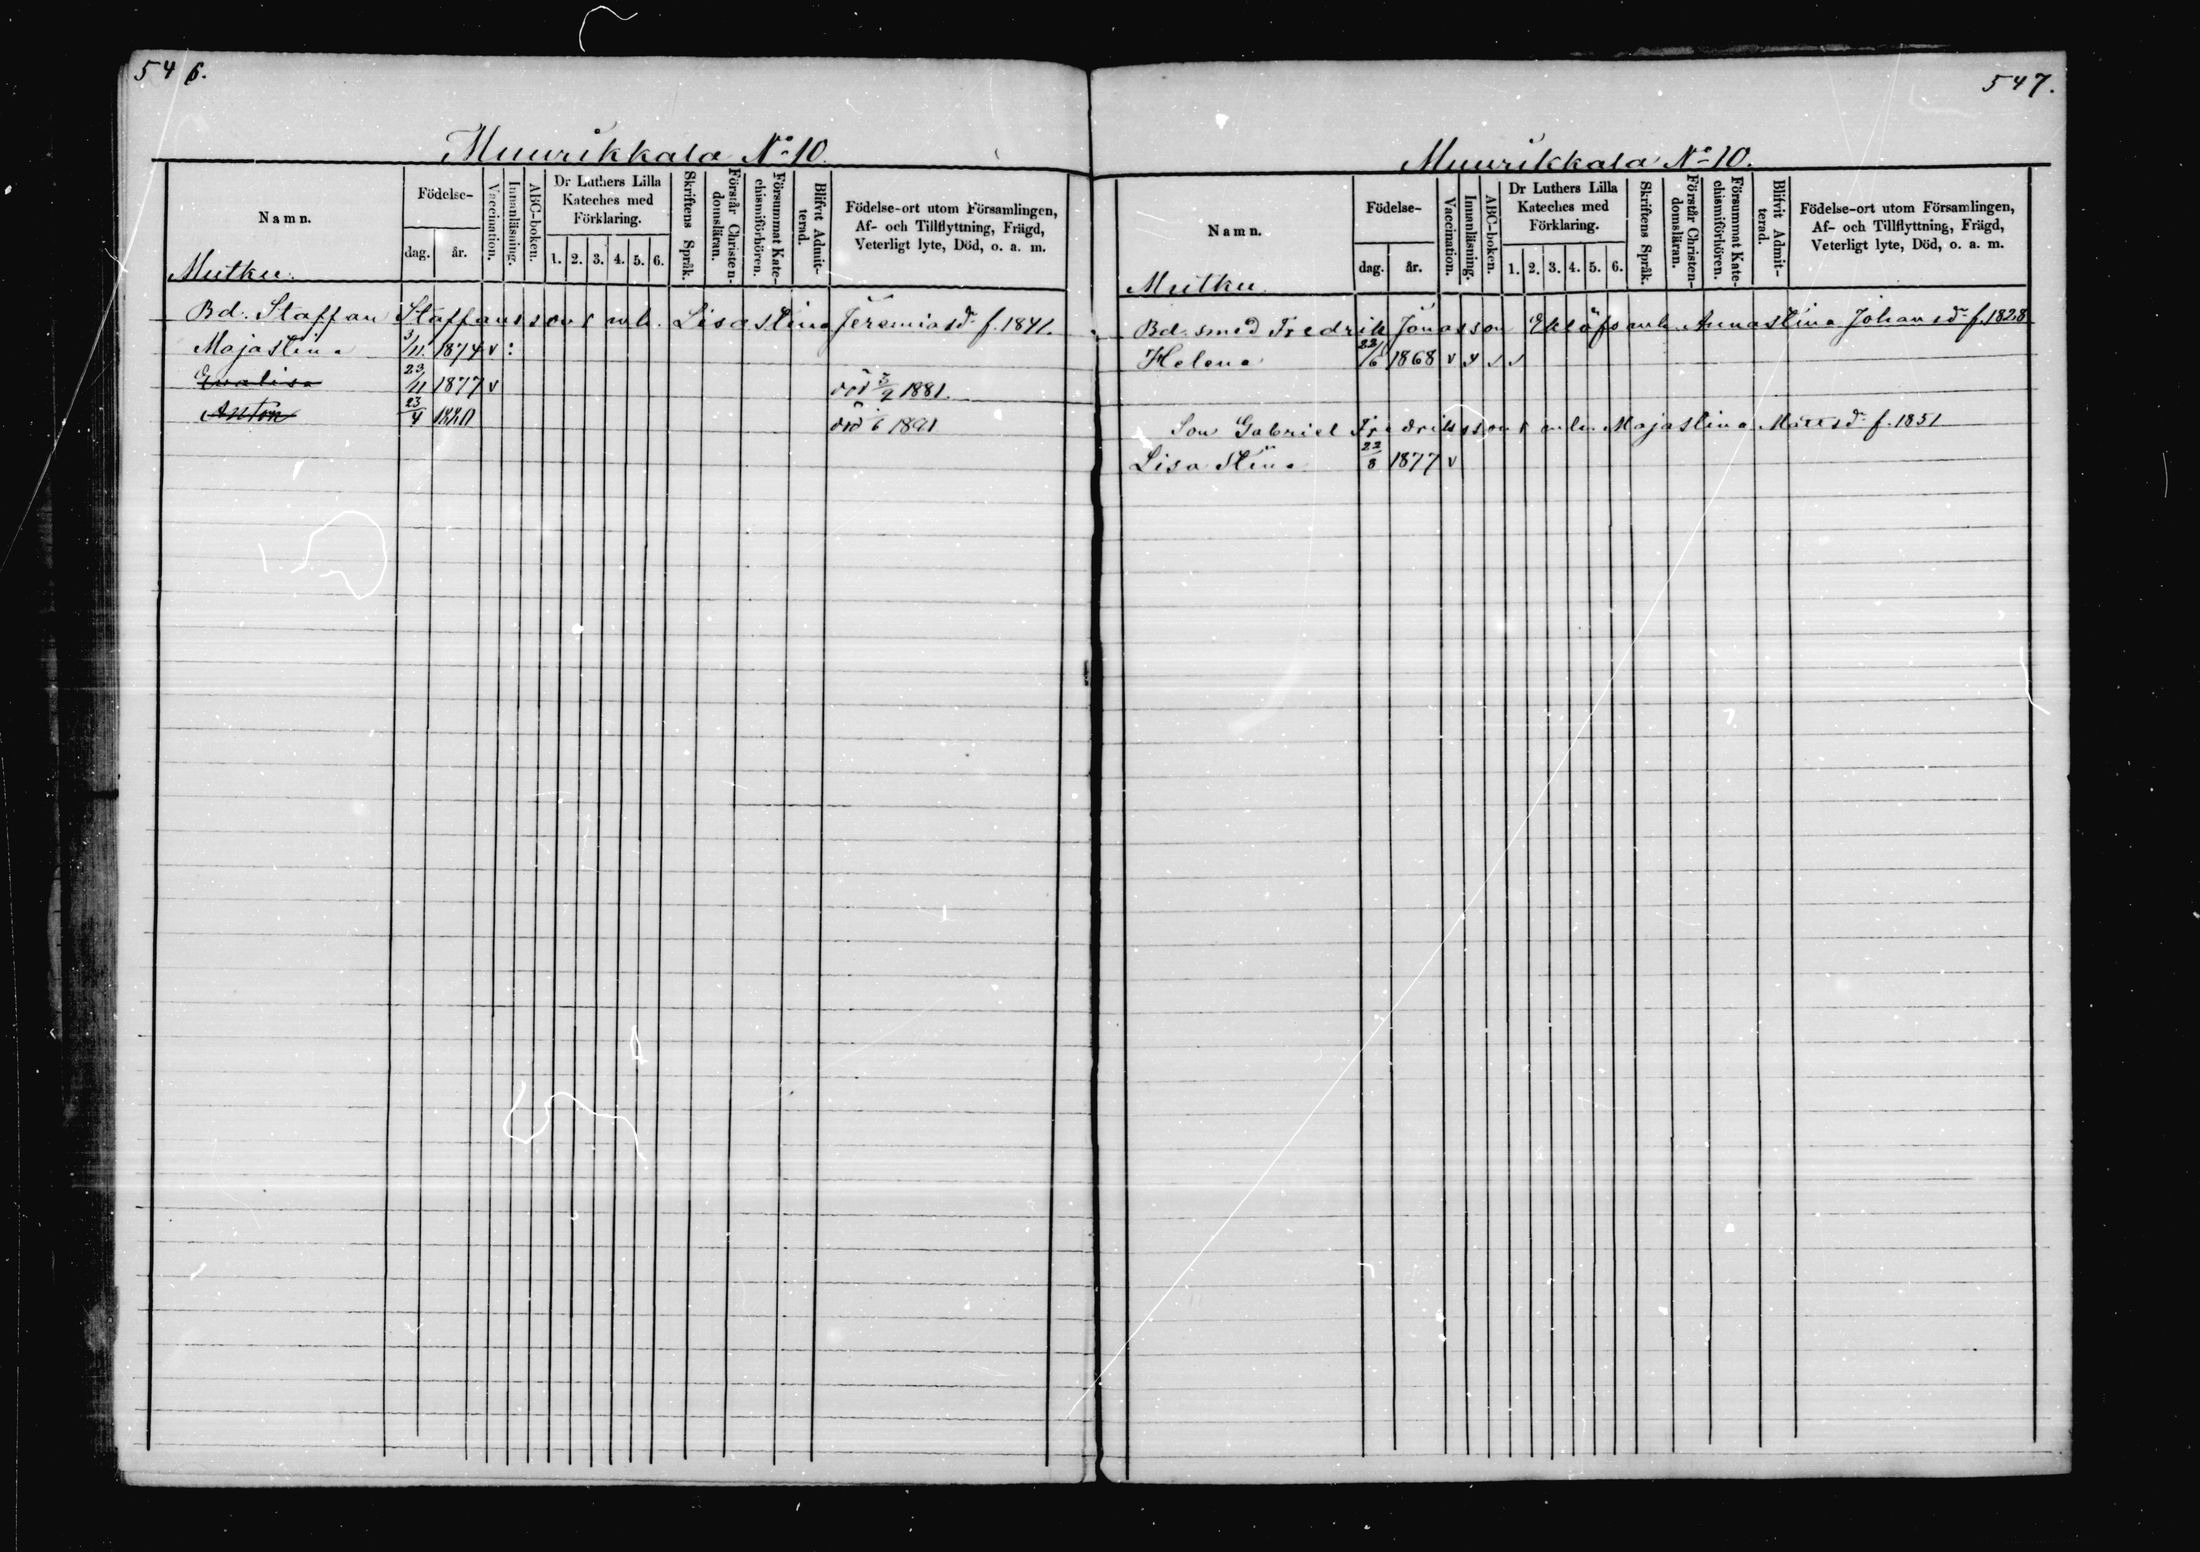 546.
Muurikkala No 10.
Namn.
Födelse-
dag.
år.
Vaccination.
Innanläsning.
ABC-boken.
Dr Luthers Lilla
Kateches med
Förklaring.
1. 2. 3. 4. 5. 6.
Skriftens Språk.
Förstår Christen-
domsläran.
Försummat Kate-
chismiförhören.
Blifvit Admit-
terad.
Födelse-ort utom Församlingen,
Af- och Tillflyttning, Frägd,
Veterligt lyte, Död, o. a. m.
Mutku.
Bd. Staffan Staffansson s enh. Lisastina Jeremiasdr f. 1841.
Majastina 3/11 1874 v :
Evalisa 23/11 1877 v död 3/9 1881.
Anton 23/4 1880 död /6 1881
547.
Muurikkala No 10.
Namn.
Födelse-
dag.
år.
Vaccination.
Innanläsning.
ABC-boken.
Dr Luthers Lilla
Kateches med
Förklaring.
1. 2. 3. 4. 5. 6.
Skriftens Språk.
Förstår Christen-
domsläran.
Försummat Kate-
chismiförhören.
Blifvit Admit-
terad.
Födelse-ort utom Församlingen,
Af- och Tillflyttning, Frägd,
Veterligt lyte, Död, o. a. m.
Mutku
Bd. smed Fredrik Jonasson Eklöfs enh. Annastina Johansdr f. 1828
Helena 22/6 1868 v
Son Gabriel Fredriksson s enh. Majastina Mattsdr f. 1851
Lisa Stina 22/8 1877 v